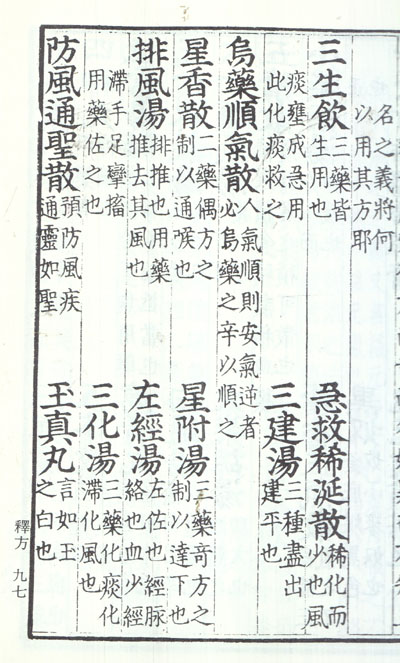 名之義將何
以用其方耶
三生飲
三藥皆
生用也
急救稀涎散
稀化而
少也風
痰壅成急用
此化痰救之
三建湯
三種盡出
建平也
烏藥順氣散
人氣順則安氣逆者
必烏藥之辛以順之
星香散
二藥偶方之
制以通喉也
星附湯
三藥奇方之
制以達下也
排風湯
排推也用藥
推去其風也
左經湯
左佐也經脈
絡也血少經
滯手足攣搐
用藥佐之也
三化湯
三藥化痰化
滯化風也
防風通聖散
預防風疾
通靈如聖
玉真丸
言如玉
之白也
釋方 九七